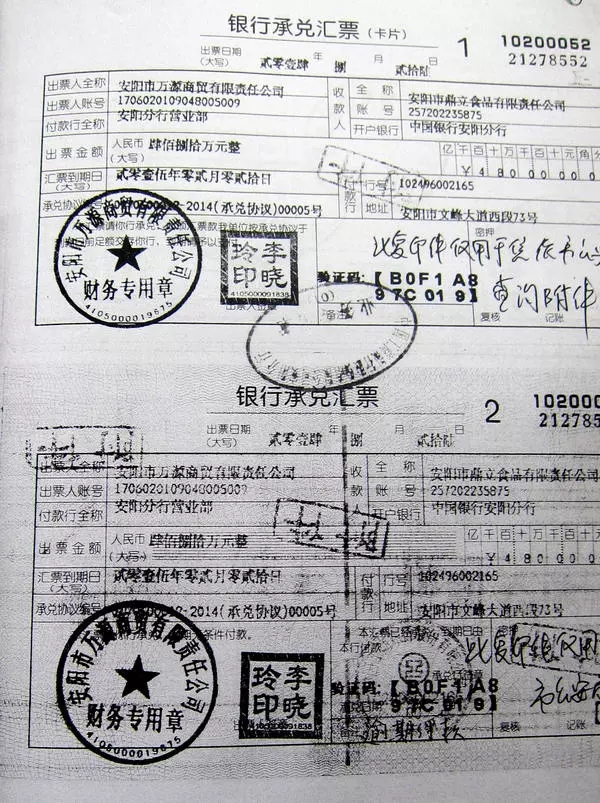 银行承兑汇票（卡片） 1 10200052
21278552
出票日期（大写） 贰零壹肆年 捌 月 贰拾陆
出票人全称 安阳市万源商贸有限责任公司 收款人 全称 安阳市鼎立食品有限责任公司
出票人账号 1706020109048005009 账号 257202235875
付款行全称 安阳分行营业部 开户银行 中国银行安阳分行
出票金额 人民币（大写） 肆佰捌拾万元整 亿千百十万千百十元角分
￥480000
汇票到期日（大写） 贰零壹伍年零贰月零贰拾日 付款行 行号 102496002165
承兑协议编号 -2014(承兑协议)00005号 地址 安阳市文峰大道西段73号
密押
安阳市万源商贸有限责任公司
财务专用章
4105000019675
李晓玲印
4105000091838
出票人签章
此复印件仅用于
验证码:【B0F1 A8
97C0 19】
查询附件
备注 复核 记账
银行承兑汇票 2 102000
212785
出票日期（大写） 贰零壹肆年 捌 月 贰拾陆
出票人全称 安阳市万源商贸有限责任公司 收款人 全称 安阳市鼎立食品有限责任公司
出票人账号 1706020109048005009 账号 257202235875
付款行全称 安阳分行营业部 开户银行 中国银行安阳分行
出票金额 人民币（大写） 肆佰捌拾万元整 亿千百十万千百十元
￥4800
汇票到期日（大写） 贰零壹伍年零贰月零贰拾日 付款行 行号 102496002165
承兑协议编号 -2014(承兑协议)00005号 地址 安阳市文峰大道西段73号
安阳市万源商贸有限责任公司
财务专用章
4105000019675
李晓玲印
4105000091838
本行付款
承兑日期
验证码:【B0F1 A8
97C0 19】
复核 记账